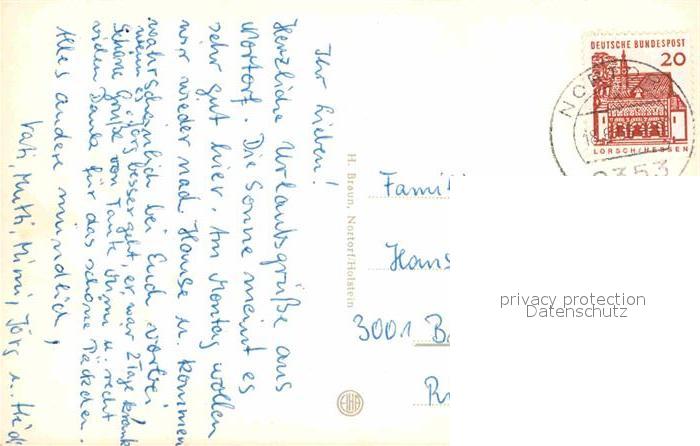 Ihr Lieben!
Herzliche Urlaubsgrüße aus
Nortorf. Die Sonne meint es
sehr gut hier. Am Montag wollen
wir wieder nach Hause u. kommen
wahrscheinlich bei Euch vorbei
wenn es Jörg besser geht, er war 2 Tage krank
Schöne Grüße von Tante u. recht
vielen Dank für das schöne Päckchen.
Alles andere mündlich,
Vati, Mutti, Mimi, Jörg u. Heid
H. Braun, Nortorf/Holstein
Famil
Hans
3001 B
DEUTSCHE BUNDESPOST
20
LORSCH/HESSEN
NORTO
2353
privacy protection
Datenschutz